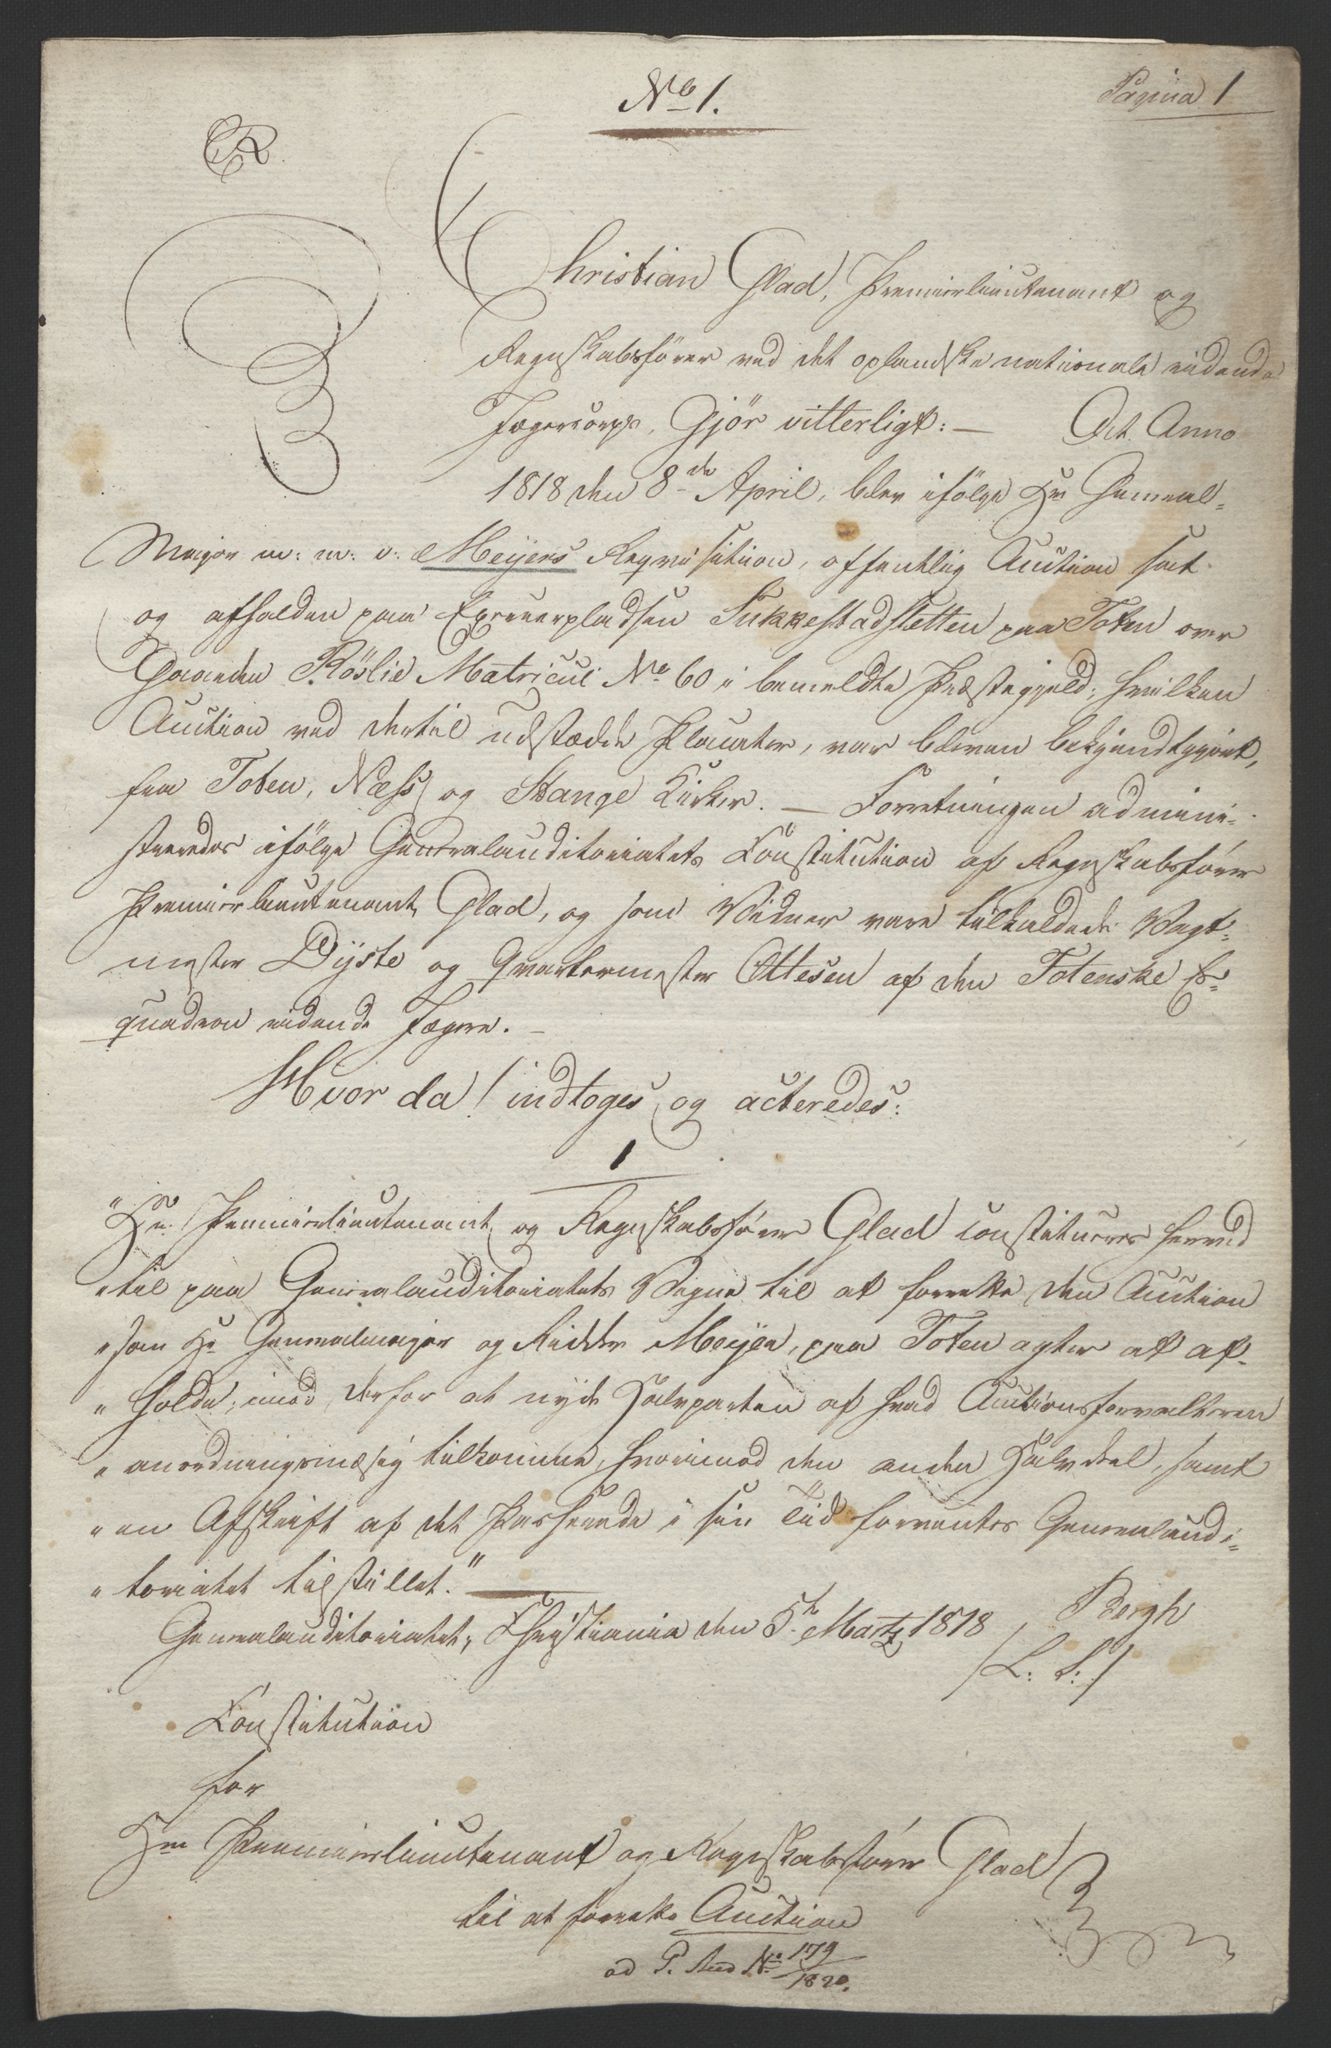 No 1.
Pagina 1
CR.
Christian Glad, Premierlieutenant og
Regnskabsfører ved det oplandske nationale ridende
Jægercorps, Gjör vitterligt: — At Anno
1818 den 8de April, blev ifölge Hr General-
Major m: m: v: Meÿers Reqvisition, offentlig Auction sat
og afholden paa Exerceerpladsen Sukkestadsletten paa Toten over
Gaarden Röslie Matricul No 60 i bemeldte Præstegjeld; hvilken
Auction ved dertil udstædde Placater, var bleven bekjendtgjort,
fra Toten, Næss og Stange Kirker. — Forretningen admini-
streredes ifölge Generalauditoriatets Constitution af Regnskabsfører
Premierlieutenant Glad, og som Vidner vare tilkaldede Vagt-
mester Dÿste og Qvarteermester Ottesen af den Totenske Es-
quadron ridende Jægere. —
Hvor da indtoges og acteredes:
1
"Hr. Premierlieutenant og Regnskabsfører Glad constitueres herved
"til paa Generalauditoriatets Vegne til at forrette den Auction
"som Hr Generalmajor og Ridder Meÿer, paa Toten agter at af-
"holde; imod derfor at nyde Halvparten af hvad Auctionsforvalteren
"anordningsmæsig tilkomme, hvorimod den anden Halvdeel, samt
"en Afskrift af det Passerede i sin Tiid forventes Generalaudi-
"toriatet tilstillet."
Generalauditoriatet, Christiania den 5te Martz 1818
Bergh
/L: S:/
Constitution
for
Hrr Premierlieutenant og Regnskabsfører Glad
til at forrette Auction
ad P. Aud No 179/1820.